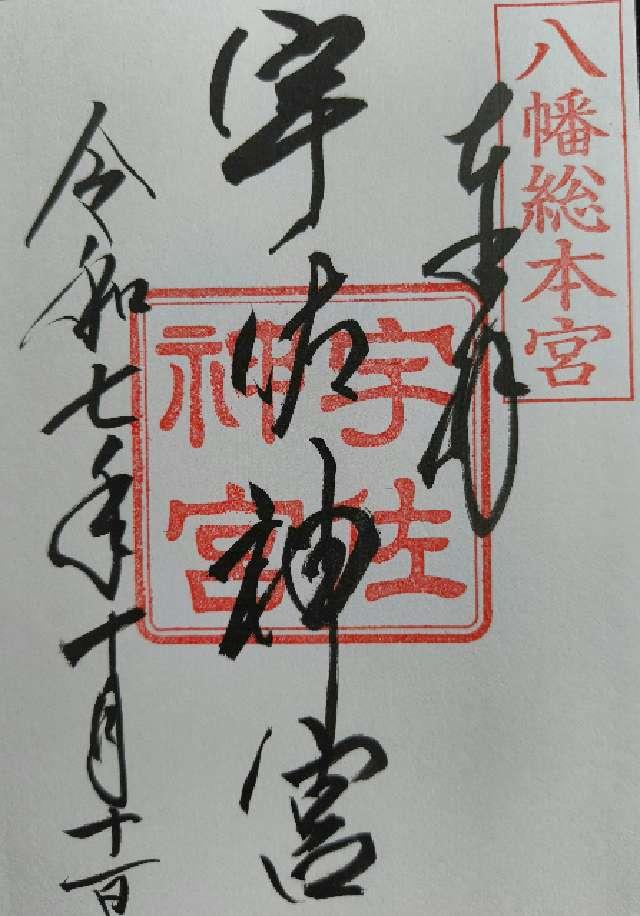 八幡総本宮
奉拝
宇佐神宮
宇佐
神宮
令和七年十月十一日